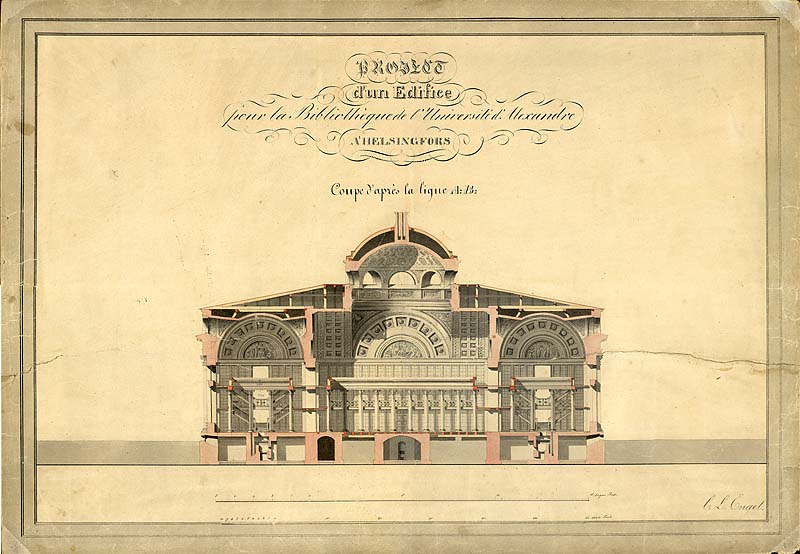 PROJECT
d'un Edifice
pour la Bibliothèque de l'Université d'Alexandre
A HELSINGFORS
Coupe d'après la ligne A: B:
C. L. Engel.